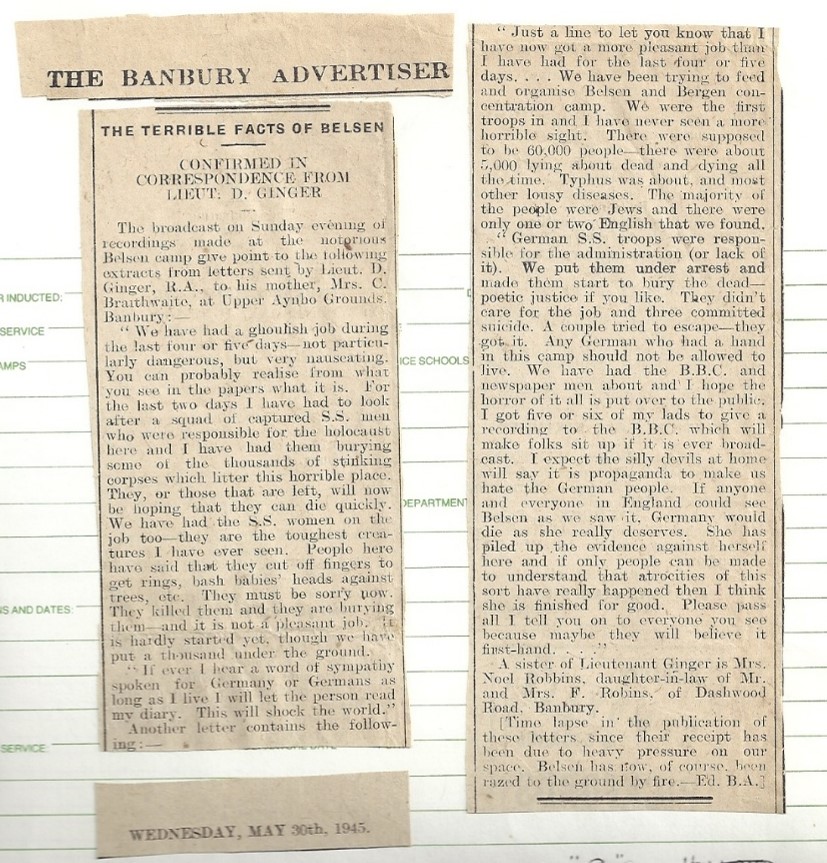 THE BANBURY ADVERTISER
THE TERRIBLE FACTS OF BELSEN
CONFIRMED IN
CORRESPONDENCE FROM
LIEUT: D. GINGER
The broadcast on Sunday evening of
recordings made at the notorious
Belsen camp give point to the following
extracts from letters sent by Lieut. D.
Ginger, R.A., to his mother, Mrs. C.
Braithwaite, at Upper Aynho Grounds.
Banbury:—
"We have had a ghoulish job during
the last four or five days—not particu-
larly dangerous, but very nauseating.
You can probably realise from what
you see in the papers what it is. For
the last two days I have had to look
after a squad of captured S.S. men
who were responsible for the holocaust
here and I have had them burying
some of the thousands of stinking
corpses which litter this horrible place.
They, or those that are left, will now
be hoping that they can die quickly.
We have had the S.S. women on the
job too—they are the toughest crea-
tures I have ever seen. People here
have said that they cut off fingers to
get rings, bash babies' heads against
trees, etc. They must be sorry now.
They killed them and they are burying
them—and it is not a pleasant job. It
is hardly started yet, though we have
put a thousand under the ground.
"If ever I hear a word of sympathy
spoken for Germany or Germans as
long as I live I will let the person read
my diary. This will shock the world."
Another letter contains the follow-
ing:—
WEDNESDAY, MAY 30th, 1945.
"Just a line to let you know that I
have now got a more pleasant job than
I have had for the last four or five
days. . . . We have been trying to feed
and organise Belsen and Bergen con-
centration camp. We were the first
troops in and I have never seen a more
horrible sight. There were supposed
to be 60,000 people—there were about
5,000 lying about dead and dying all
the time. Typhus was about, and most
other lousy diseases. The majority of
the people were Jews and there were
only one or two English that we found.
"German S.S. troops were respon-
sible for the administration (or lack of
it). We put them under arrest and
made them start to bury the dead—
poetic justice if you like. They didn't
care for the job and three committed
suicide. A couple tried to escape—they
got it. Any German who had a hand
in this camp should not be allowed to
live. We have had the B.B.C. and
newspaper men about and I hope the
horror of it all is put over to the public.
I got five or six of my lads to give a
recording to the B.B.C. which will
make folks sit up if it is ever broad-
cast. I expect the silly devils at home
will say it is propaganda to make us
hate the German people. If anyone
and everyone in England could see
Belsen as we saw it, Germany would
die as she really deserves. She has
piled up the evidence against herself
here and if only people can be made
to understand that atrocities of this
sort have really happened then I think
she is finished for good. Please pass
all I tell you on to everyone you see
because maybe they will believe it
first-hand. . . ."
A sister of Lieutenant Ginger is Mrs.
Noel Robbins, daughter-in-law of Mr.
and Mrs. F. Robins, of Dashwood
Road, Banbury.
[Time lapse in the publication of
these letters since their receipt has
been due to heavy pressure on our
space. Belsen has now, of course, been
razed to the ground by fire.—Ed. B.A.]
R INDUCTED:
SERVICE
AMPS
ICE SCHOOLS
DEPARTMENT
NS AND DATES:
SERVICE: